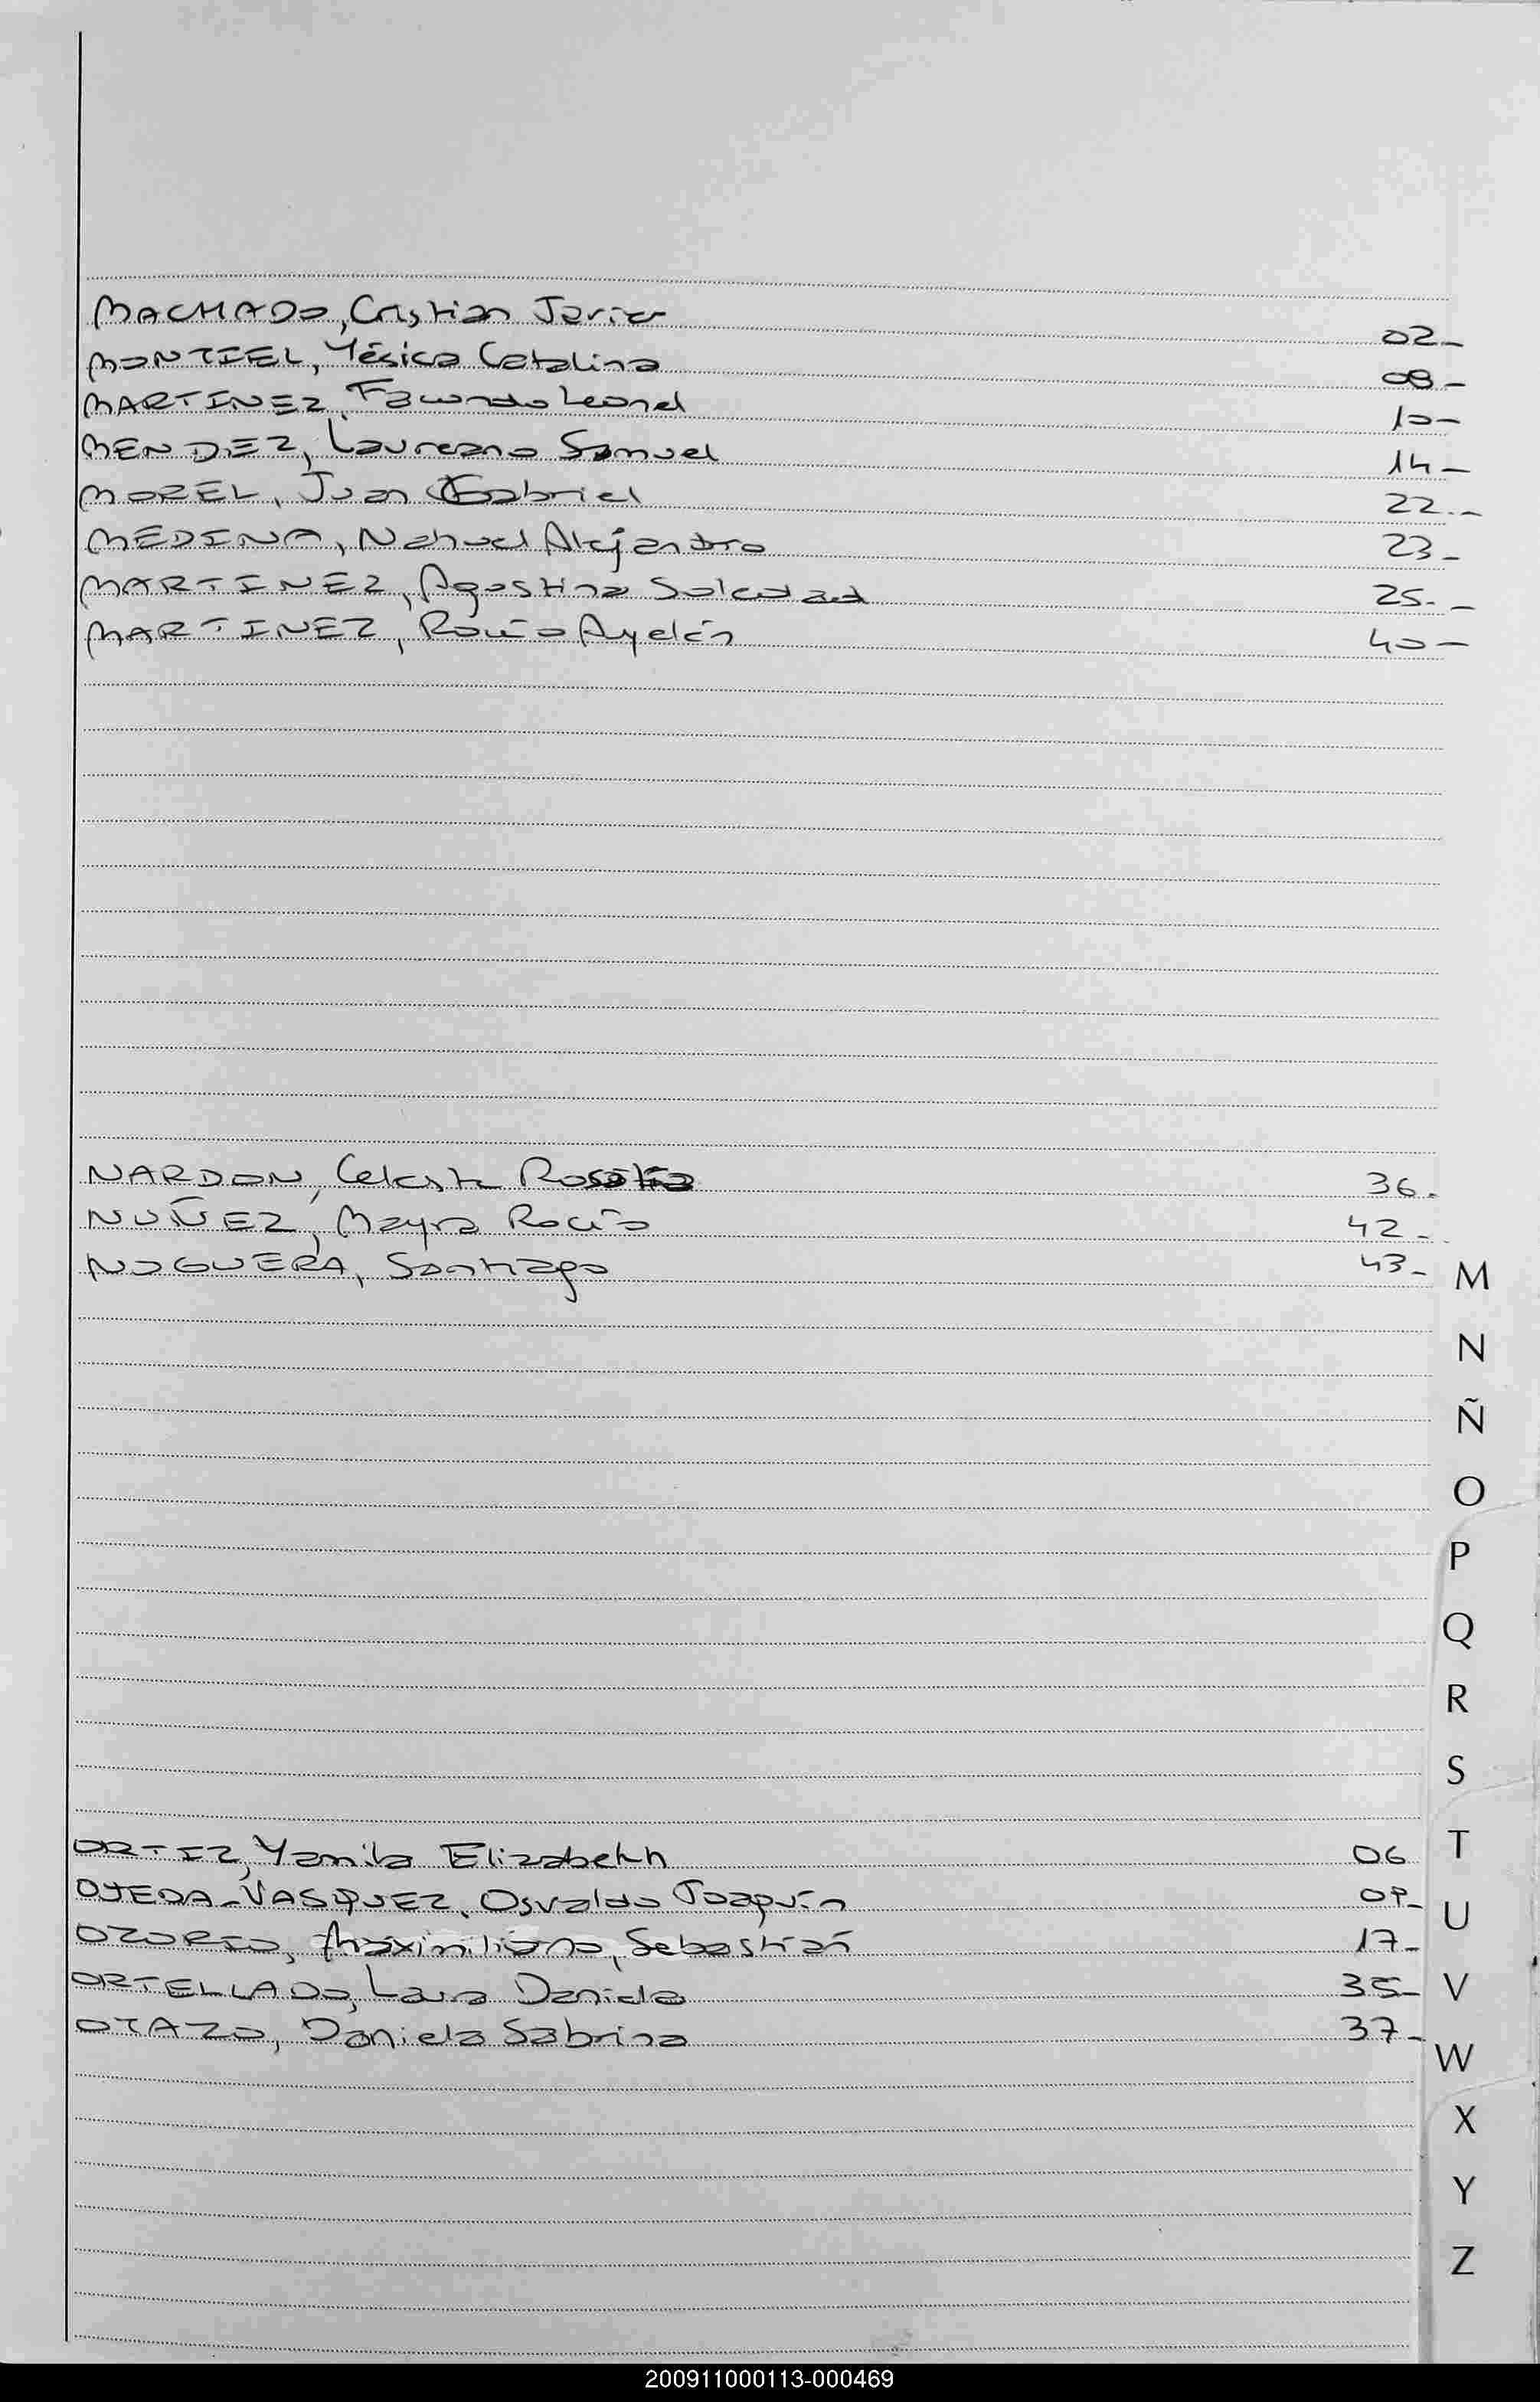 MACHADO, Cristian Javier 02_
MONTIEL, Yésica Catalina 08_
MARTINEZ, Facundo Leonel 10_
MENDEZ, Laureano Samuel 14_
MOREL, Juan Gabriel 22._
MEDINA, Nahuel Alejandro 23_
MARTINEZ, Agostina Soledad 25._
MARTINEZ, Rocío Ayelén 40_
NARDON, Celeste 36.
NUÑEZ, Mayra Rocío 42_
NOGUERA, Santiago 43_
M
N
Ñ
O
P
Q
R
S
ORTIZ, Yamila Elizabeth 06
T
OJEDA-VASQUEZ, Osvaldo Joaquín 09_
U
OZORIO, Maximiliano, Sebastián 17_
ORTELLADO, Laura Daniela 35_
V
OTAZO, Daniela Sabrina 37_
W
X
Y
Z
200911000113-000469